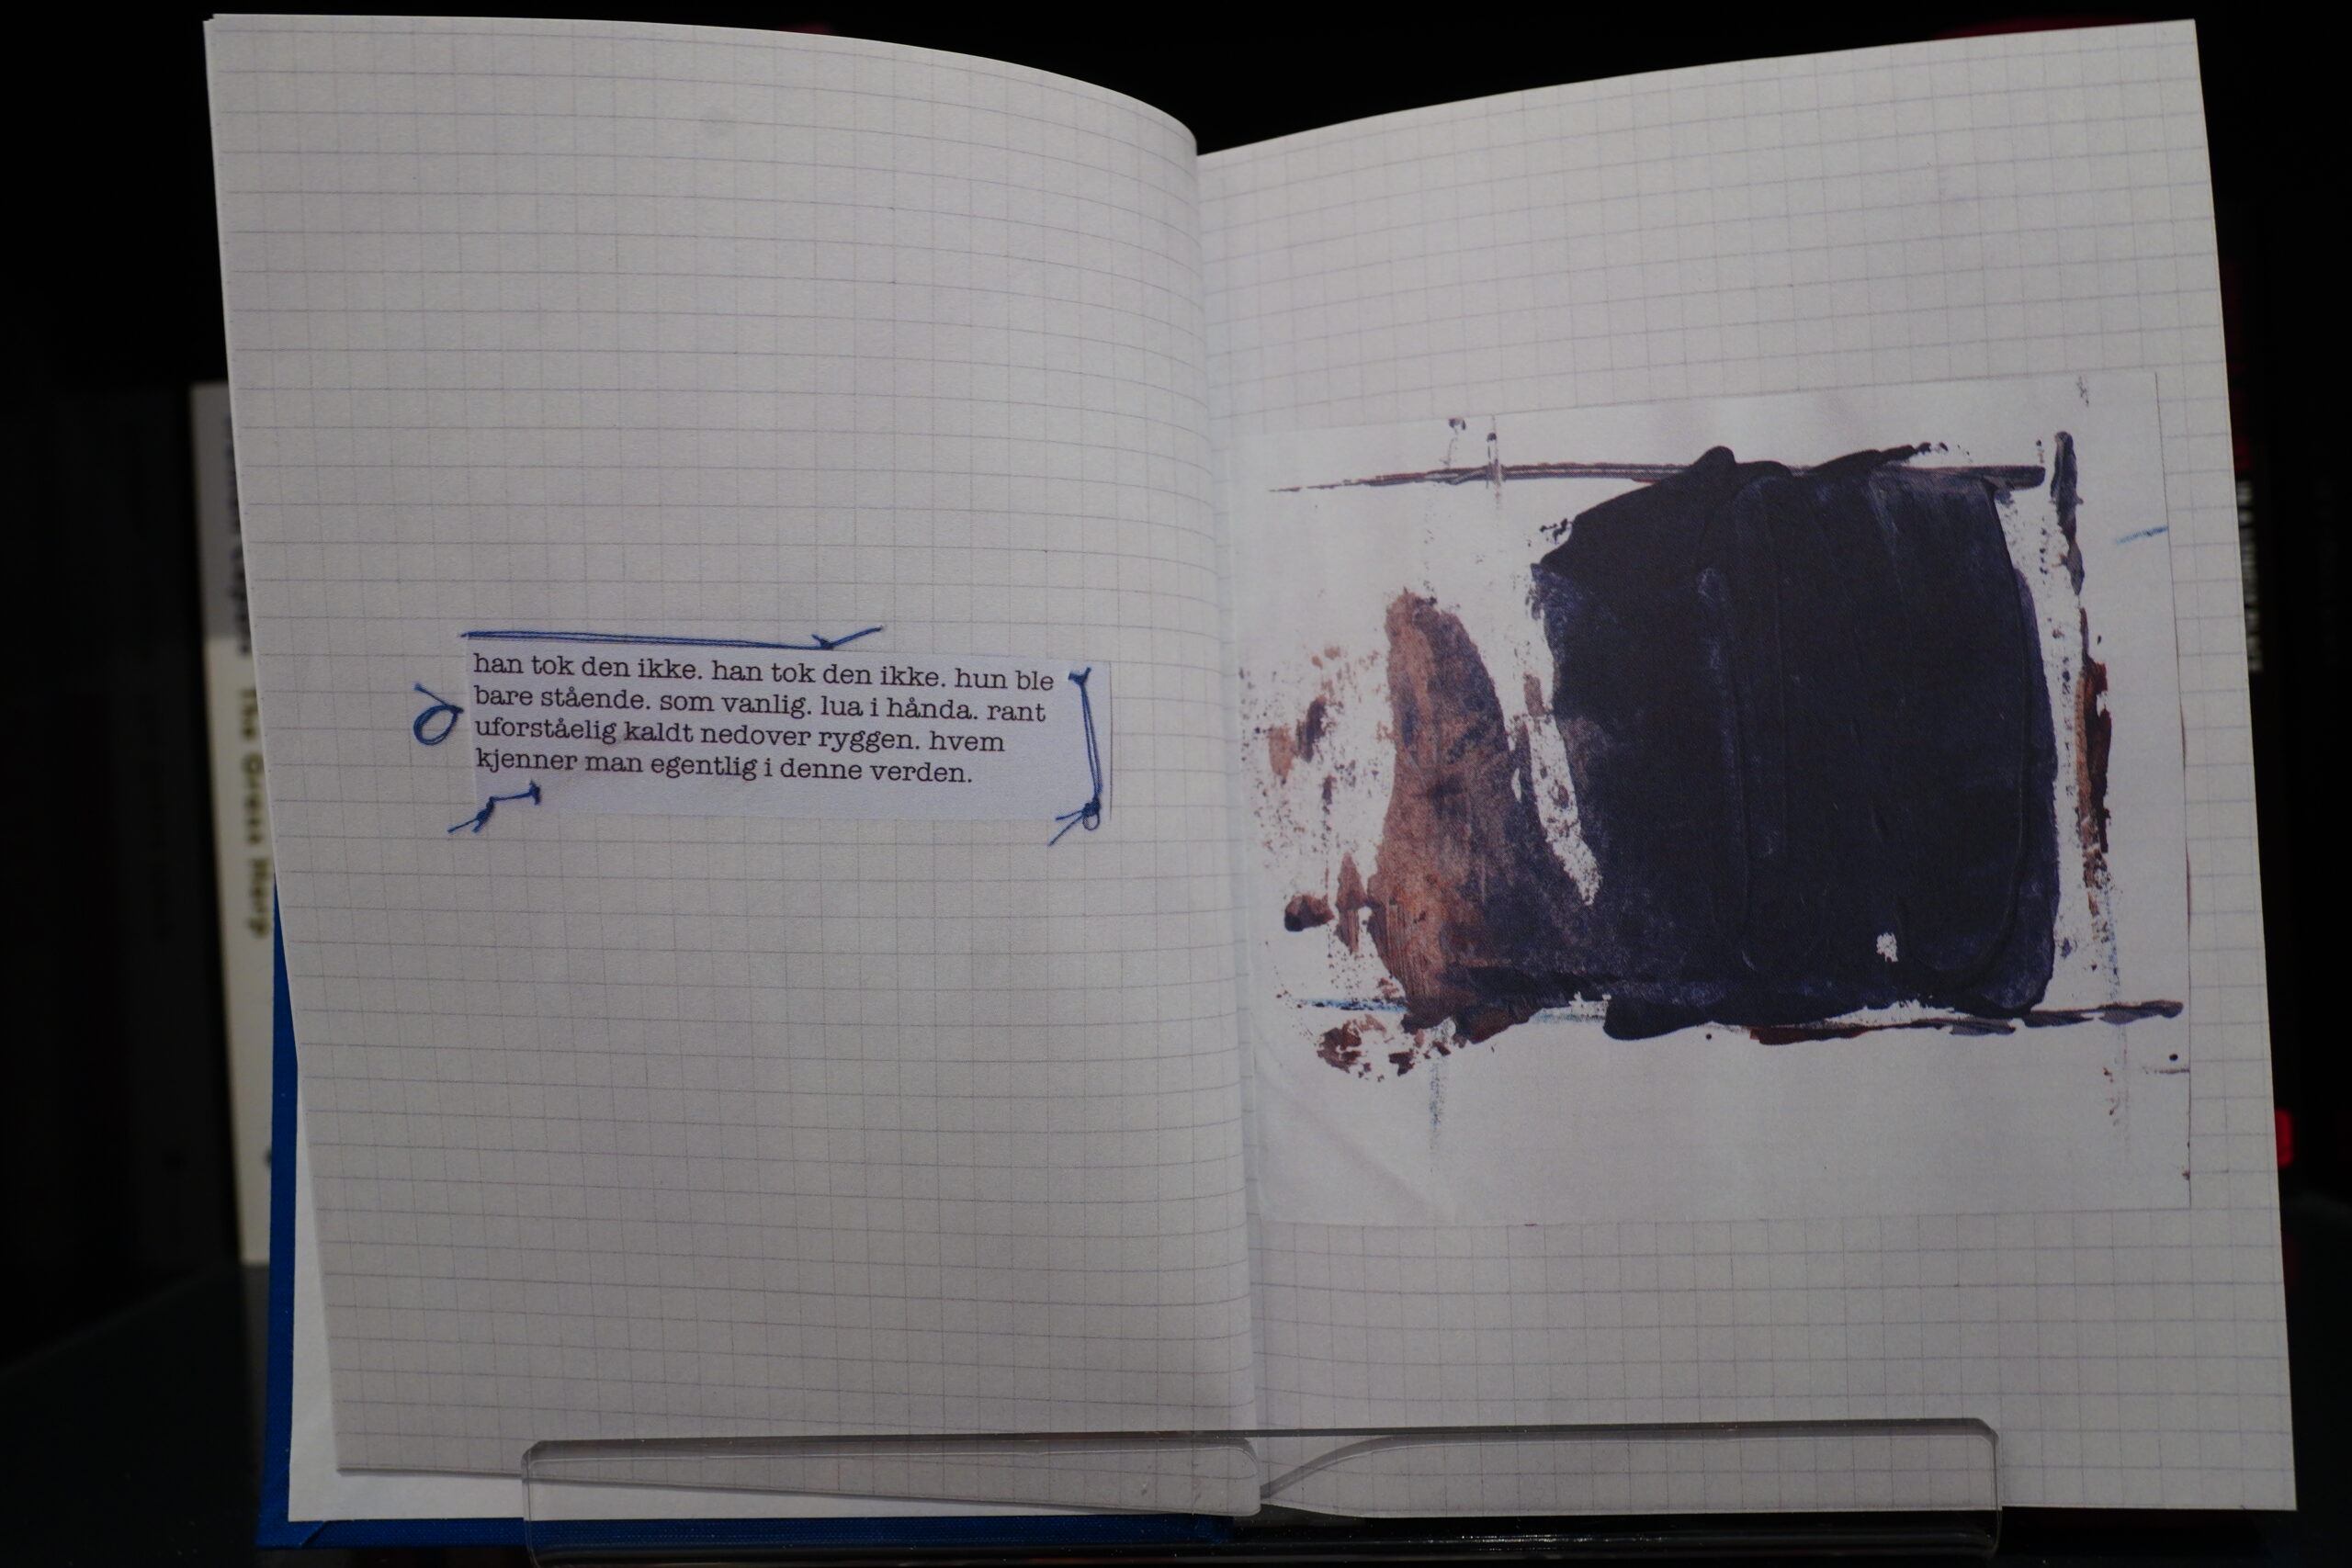 han tok den ikke. han tok den ikke. hun ble
bare stående. som vanlig. lua i hånda. rant
uforståelig kaldt nedover ryggen. hvem
kjenner man egentlig i denne verden.